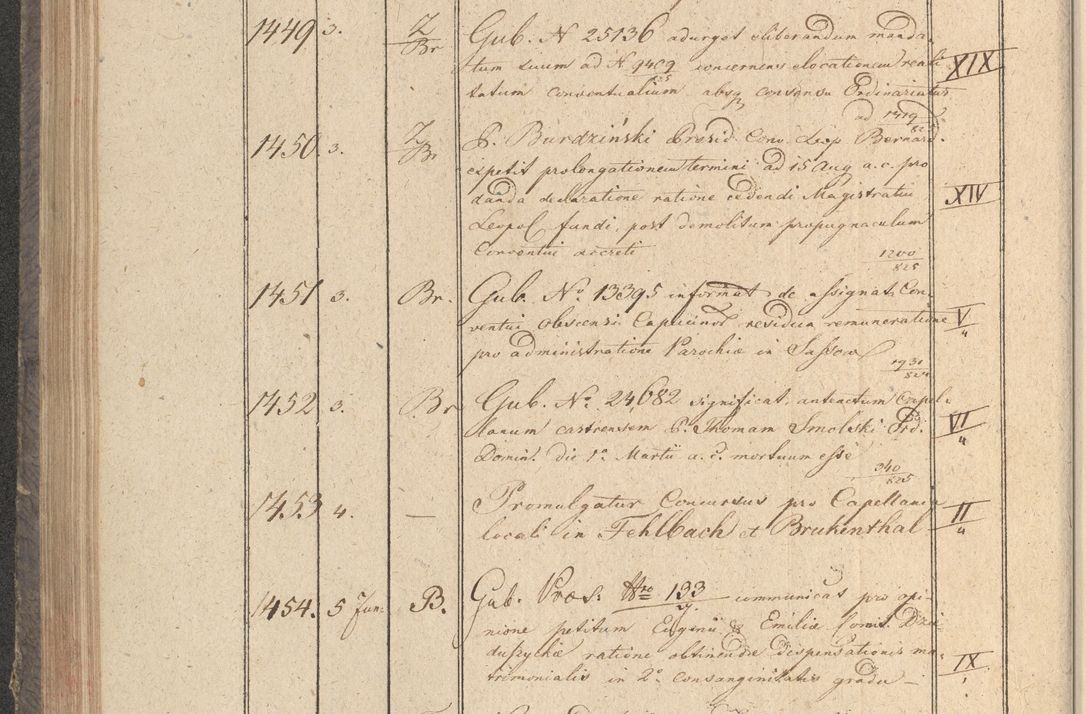 1449 3. Z/Br Gub. N 25136 adurget eliberandum manda-
tum suum ad N 9409/825 concernens elocationem reali- XIX
tatum conventualium absq consensu Ordinariatus
ad 1419/82
1450 3. Z/Br P. Burdziński Presid. Conv. Leop Bernard.
expetit prolongationem termini ad 15 Aug a.c. pro
danda declaratione ratione cedendi Magistratui XIV
Leopol fundi, post demolitum propugnaculum
Conventui accreti 1200/825
1451 3. Br. Gub. No 13395 informat de assignat. Con-
ventui Olescensi Capucinor residua remuneratione V/4
pro administratione Parochiæ in Sassow
1931/824
1452 3. Br Gub. No 24682 significat, anteactum Capel-
lanum castrensem P. Thomam Smolski Ord. VI/4
Domin. die 1a Martii a. c. mortuum esse
340/825
1453 4. — Promulgatur Concursus pro Capellania II/4
locali in Fehlbach et Brukenthal
1454. 5 Jun: B. Gub. Præs. Nro 133/g. communicat pro opi-
nione petitum Eugenii & Emiliæ Comit. Dzie
duszyckie ratione obtinendæ dispensationis ma- IX/1
trimonialis in 2o consanginitatis gradu —